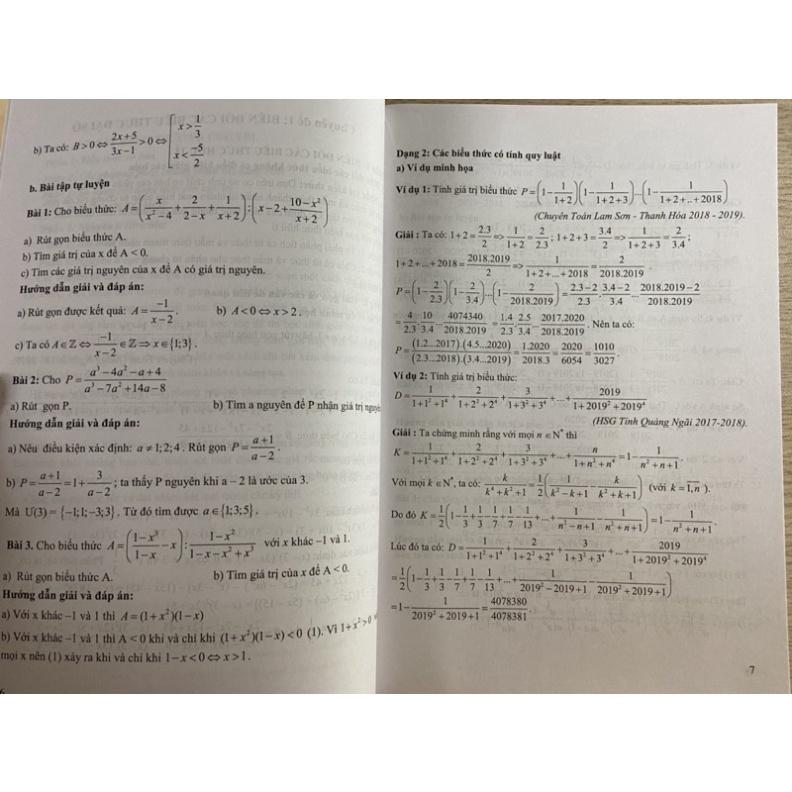 b) Ta có: B > 0 ⇔ (2x+5)/(3x−1) > 0 ⇔ [ x > 1/3 ; x < −5/2
b. Bài tập tự luyện
Bài 1: Cho biểu thức: A = (x/(x²−4) + 2/(2−x) + 1/(x+2)) : (x−2 + (10−x²)/(x+2))
a) Rút gọn biểu thức A.
b) Tìm giá trị của x để A < 0.
c) Tìm các giá trị nguyên của x để A có giá trị nguyên.
Hướng dẫn giải và đáp án:
a) Rút gọn được kết quả: A = −1/(x−2). b) A < 0 ⇔ x > 2.
c) Ta có A ∈ Z ⇔ −1/(x−2) ∈ Z ⇒ x ∈ {1;3}.
Bài 2: Cho P = (a³−4a²−a+4)/(a³−7a²+14a−8)
a) Rút gọn P. b) Tìm a nguyên để P nhận giá trị nguyên
Hướng dẫn giải và đáp án:
a) Nêu điều kiện xác định: a ≠ 1;2;4. Rút gọn P = (a+1)/(a−2).
b) P = (a+1)/(a−2) = 1 + 3/(a−2); ta thấy P nguyên khi a − 2 là ước của 3.
Mà Ư(3) = {−1;1;−3;3}. Từ đó tìm được a ∈ {1;3;5}.
Bài 3. Cho biểu thức A = ((1−x³)/(1−x) − x) : (1−x²)/(1−x−x²+x³) với x khác −1 và 1.
a) Rút gọn biểu thức A. b) Tìm giá trị của x để A < 0.
Hướng dẫn giải và đáp án:
a) Với x khác −1 và 1 thì A = (1+x²)(1−x)
b) Với x khác −1 và 1 thì A < 0 khi và chỉ khi (1+x²)(1−x) < 0 (1). Vì 1+x² > 0
mọi x nên (1) xảy ra khi và chỉ khi 1−x < 0 ⇔ x > 1.
Dạng 2: Các biểu thức có tính quy luật
a) Ví dụ minh họa
Ví dụ 1: Tính giá trị biểu thức P = (1 − 1/(1+2))(1 − 1/(1+2+3))...(1 − 1/(1+2+..+2018))
(Chuyên Toán Lam Sơn - Thanh Hóa 2018 - 2019).
Giải : Ta có: 1+2 = 2.3/2 => 1/(1+2) = 2/2.3; 1+2+3 = 3.4/2 => 1/(1+2+3) = 2/3.4;
1+2+...+2018 = 2018.2019/2 => 1/(1+2+...+2018) = 2/2018.2019.
P = (1 − 2/2.3)(1 − 2/3.4)...(1 − 2/2018.2019) = (2.3−2)/2.3 . (3.4−2)/3.4 ... (2018.2019−2)/2018.2019
= 4/2.3 . 10/3.4 ... 4074340/2018.2019 = 1.4/2.3 . 2.5/3.4 ... 2017.2020/2018.2019. Nên ta có:
P = (1.2...2017).(4.5...2020)/(2.3...2018).(3.4...2019) = 1.2020/2018.3 = 2020/6054 = 1010/3027.
Ví dụ 2: Tính giá trị biểu thức:
D = 1/(1+1²+1⁴) + 2/(1+2²+2⁴) + 3/(1+3²+3⁴) + ... + 2019/(1+2019²+2019⁴)
(HSG Tỉnh Quảng Ngãi 2017-2018).
Giải : Ta chứng minh rằng với mọi n ∈ N* thì
K = 1/(1+1²+1⁴) + 2/(1+2²+2⁴) + 3/(1+3²+3⁴) + ... + n/(1+n²+n⁴) = 1 − 1/(n²+n+1).
Với mọi k ∈ N*, ta có: k/(k⁴+k²+1) = 1/2(1/(k²−k+1) − k/(k²+k+1)) (với k = 1,n).
Do đó K = 1/2(1 − 1/3 + 1/3 − 1/7 + 1/7 − 1/13 + ... + 1/(n²−n+1) − 1/(n²+n+1)) = 1 − 1/(n²+n+1).
Lúc đó ta có: D = 1/(1+1²+1⁴) + 2/(1+2²+2⁴) + 3/(1+3²+3⁴) + ... + 2019/(1+2019²+2019⁴)
= 1/2(1 − 1/3 + 1/3 − 1/7 + 1/7 − 1/13 + ... + 1/(2019²−2019+1) − 1/(2019²+2019+1))
= 1 − 1/(2019²+2019+1) = 4078380/4078381.
7